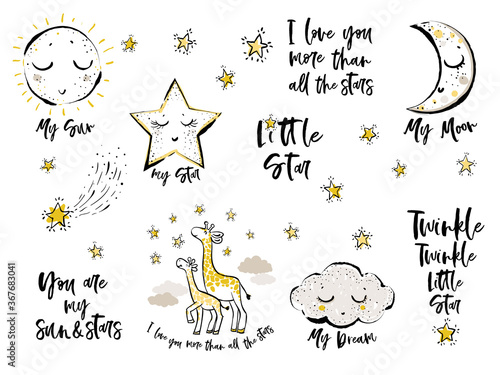 I love you
more than
all the stars
My Sun
My Star
Little
Star
My Moon
You are
my
sun & stars
I love you more than all the stars
My Dream
Twinkle
Twinkle
Little
Star
Adobe Stock | #367683041